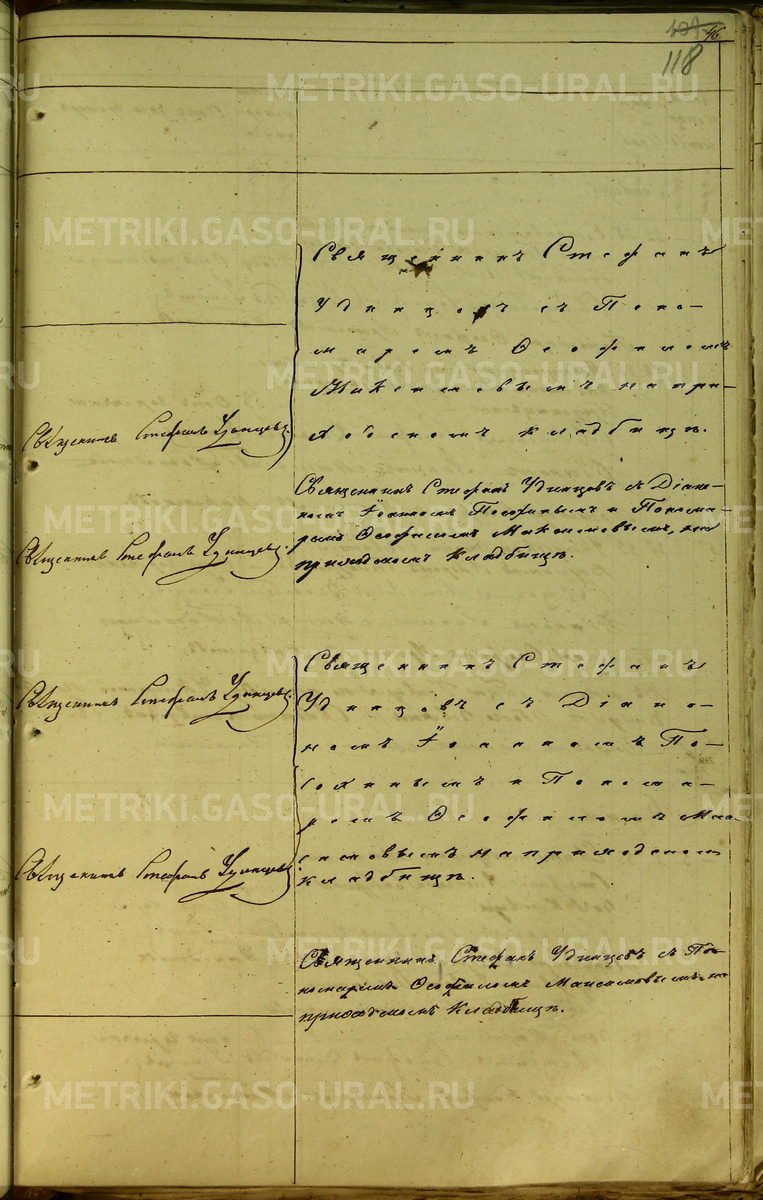 46.
118
Священникъ Стефанъ
Удинцовъ съ Поно-
маремъ Ѳеофиломъ
Максимовымъ на при-
ходскомъ кладбищѣ.
Священникъ Стефанъ Удинцевъ
Священникъ Стефанъ Удинцовъ съ Діако-
номъ Іоанномъ
и Понома-
ремъ Ѳеофиломъ Максимовымъ, на
приходскомъ кладбищѣ.
Священникъ Стефанъ Удинцевъ
Священникъ Стефанъ
Удинцовъ съ Діако-
номъ Іоанномъ По-
и Понома-
ремъ Ѳеофиломъ Мак-
симовымъ на приходском
кладбищѣ.
Священникъ Стефанъ Удинцевъ
Священникъ Стефанъ Удинцевъ
Священникъ Стефанъ Удинцовъ съ По-
номаремъ Ѳеофиломъ Максимовымъ на
приходскомъ кладбищѣ.
METRIKI.GASO-URAL.RU